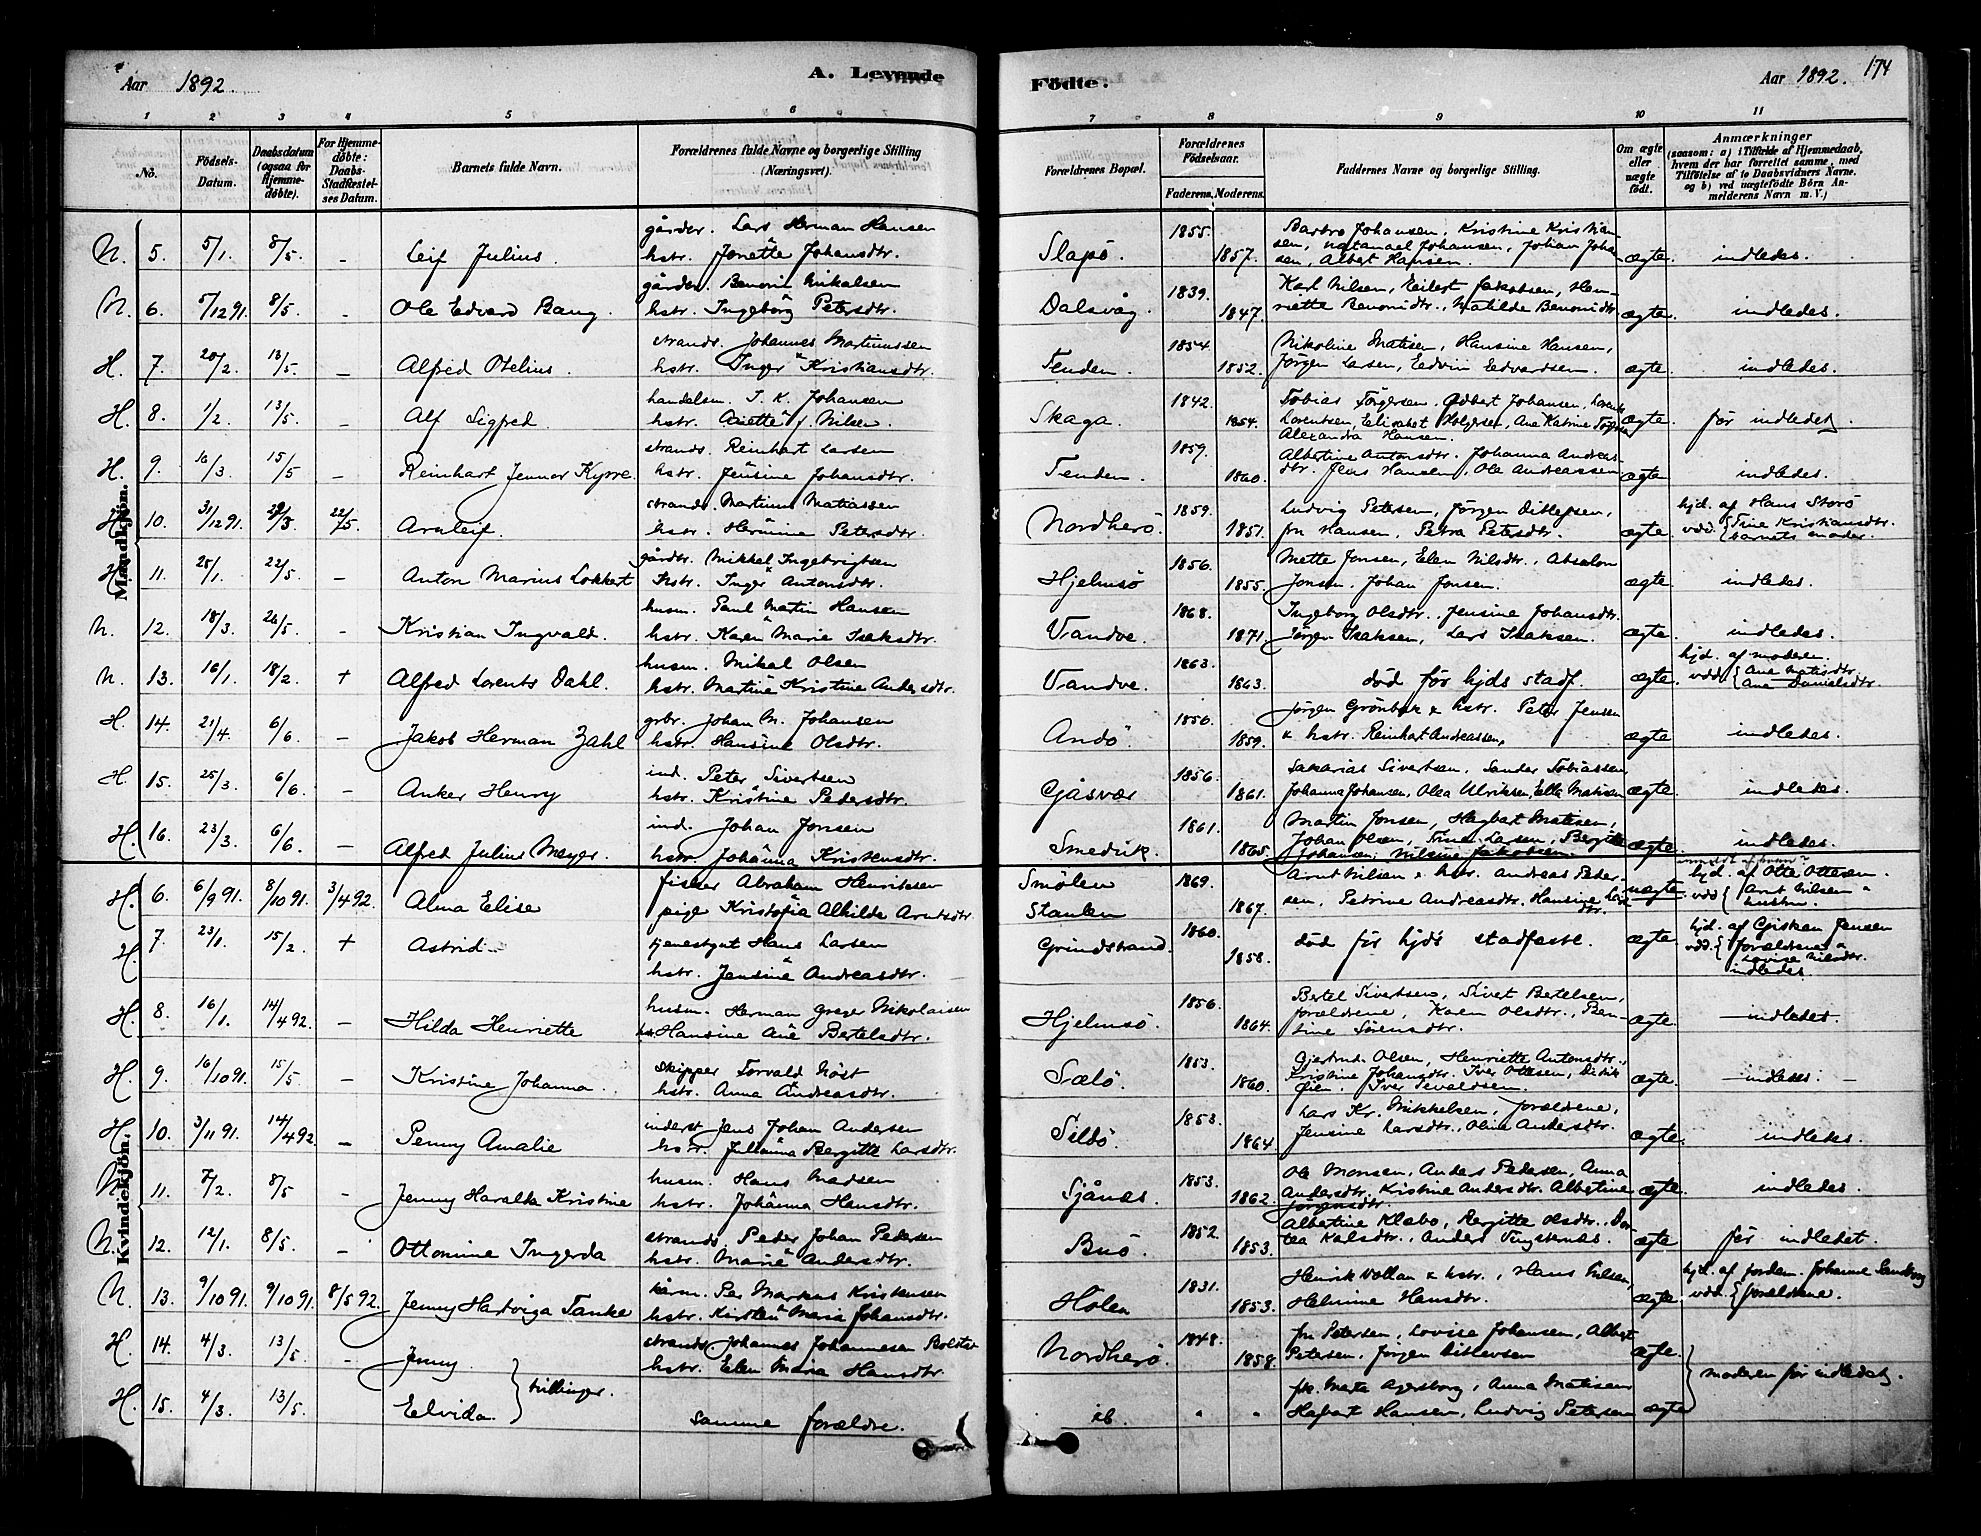 Aar 1892.
A. Levende
Födte.
Aar 1892. 174
1 2 3 4 5 6 7 8 9 10 11
No.
Födsels-Datum.
Daabsdatum (ogsaa for Hjemmedöbte).
For Hjemmedöbte: Daabs-Stadfæstelses Datum.
Barnets fulde Navn.
Forældrenes fulde Navne og borgerlige Stilling (Næringsvei).
Forældrenes Bopæl.
Forældrenes Födselsaar.
Faderens. Moderens.
Faddernes Navne og borgerlige Stilling.
Om ægte eller uægte födt.
Anmærkninger
(saasom: a) i Tilfælde af Hjemmedaab, hvem der har forrettet samme, med Tilföielse af to Daabsvidners Navne. og b) ved uægtefödte Börn Anmelderens Navn m. V.)
Mandkjön.
N. 5. 5/1. 8/5. – Leif Julius.
gårdbr. Lars Herman Hansen
hstr. Jonette Johansdtr.
Slapö. 1855. 1857.
Barbro Johansen, Kristine Kristiansen, Natanael Johansen, Johan Johansen, Albert Hansen.
ægte. indledes.
N. 6. 5/12 91. 8/5. – Ole Edvard Bang.
gårdbr. Benoni Mikalsen
hstr. Ingeborg Petersdtr.
Dalsvåg. 1839. 1847.
Karl Nilsen, Reibert Jakobsen, Henriette Benonidtr., Matilde Benonidtr
ægte. indledes.
H. 7. 20/2. 13/5. – Alfred Otelius.
strands. Johannes Martinussen
hstr. Inger Kristiansdtr.
Tenden. 1854. 1852.
Nikoline Matisen, Hansine Hansen, Jörgen Larsen, Edvin Edvardsen.
ægte. indledes.
H. 8. 1/2. 13/5. – Alf Sigfred.
handelsm. J. K. Johansen
hstr. Anette f. Nilsen.
Skaga. 1842. 1854.
Tobias Törgersen, Edbert Johansen, Lorents Lorentsen, Elisabet Holgersen, Ane Katrine
Alexandra Hansen.
ægte. för indledet.
H. 9. 16/3. 15/5. – Reinhart Jennar Kyrre.
strands. Reinhart Larsen
hstr. Jensine Johansdtr.
Tenden. 1859. 1860.
Albertine Antonsdtr. Johanna Andreasdtr. Jens Hansen, Ole Andreassen
ægte. indledes.
H. 10. 31/12 91. 29/3. 22/5. Arnleif.
strands. Martinus Matiassen
hstr. Hermine Petersdtr.
Nordherö. 1859. 1851.
Ludvig Petersen, Jörgen Ditlefsen, fru Hansen, Petra Petersdtr.
ægte. hjd. af Hans Storö
vdd. { Trine Kristiansdtr.
barnets moder.
H. 11. 25/1. 22/5. – Anton Marius Lokkert
gårdbr. Mikkel Ingebrigtsen
hstr. Inger Antonsdtr.
Hjelmsö 1856. 1855.
Mette Jonsen, Elen Nilsdtr., Absalon Jonsen, Johan Jonsen.
ægte. indledes.
N. 12. 18/3. 26/5. – Kristian Ingvald.
husm. Paul Martin Hansen
hstr. Karen Marie Isaksdtr.
Vandve. 1868. 1871
Ingeborg Olsdtr. Jensine Johansdtr. Jörgen Isaksen, Lars Isaksen.
ægte. indledes.
N. 13. 16/1. 18/2. + Alfred Lorents Dahl.
husm. Mikal Olsen
hstr. Martine Kristine Andersdtr.
Vandve. 1863. 1863.
död för hjds stadf.
ægte. hjd. af moderen.
vdd { Ane Matisdtr
Ane Danielsdtr.
H. 14. 21/4. 6/6. – Jakob Herman Zahl
grbr. Johan M. Johansen
hstr. Hansine Olsdtr.
Andö. 1850. 1859.
Jörgen Grönbæk & hstr. Peter Jensen & hstr. Reinhart Andreassen,
ægte indledes.
H 15. 25/3. 6/6. – Anker Henry
ind. Peter Sivertsen
hstr. Kristine Pedersdtr.
Gåsvær 1856. 1861.
Sakarias Sivertsen, Sander Tobiassen, Johanna Johansen, Olea Ulriksen, Ella Matisen
ægte. indledes.
H. 16. 23/3. 6/6. – Alfred Julius Meyer.
ind. Johan Jonsen
hstr. Johanna Kristensdtr.
Smedvik. 1861. 1865.
Martin Jonsen, Hagbart Matisen, Johan Olsen, Trine Larsen, Bergitte Johansen, Nilsine Jakobsen.
ægte. indledes.
Kvindekjön.
H. 6. 6/9 91. 8/10 91. 3/4 92. Alma Elise
fisker Abraham Henriksen
pige Kristofia Alhilde Arntsdtr
Smölen
Stanlen 1869. 1867.
Arnt Nilsen & hstr. Andreas Pedersen, Petrine Andreasdtr. Hansine
uægte hjd. af Otte Ottesen.
vdd { Arnt Nilsen &
hustru.
H 7. 23/1. 15/2. + Astrid
tjenestgut Hans Larsen
hstr. Jensine Andreasdtr.
Grindstrand 1860. 1858.
död för hjds stadfæst.
ægte. hjd. af Gjisken Jensen
vdd. { forældrene &
Lovise Nilsdtr.
indledes
H. 8. 16/1. 14/4 92. – Hilda Henriette
husm. Herman Greger Nikolaisen
hs. Hansine Ane Bertelsdtr.
Hjelmsö. 1856. 1864.
Bertel Sivertsen, Sivert Bertelsen, forældrene, Karen Olsdtr., Bentine Sörensdtr.
ægte. indledes.
H. 9. 16/10 91. 15/5. – Kristine Johanna.
skipper Torvald Höst
hstr. Anna Andreasdtr.
Sælö. 1853. 1860.
Gjertrud Olsen, Henriette Antonsdtr., Kristine Johansdtr. Iver Ottesen, Didrik Öien, Iver Sevaldsen.
ægte. indledes. –
H 10. 3/11 91. 14/4 92. – Penny Amalie
inderst Jens Johan Andersen
hstr. Julianna Bergitte Larsdtr.
Sildö. 1853. 1864
Lars Kr. Mikkelsen, forældrene, Jensine Larsdtr., Olina Andersdtr.
ægte. indledes.
N. 11. 7/2. 8/5. – Jenny Haralda Kristine
husm. Hans Madsen
hstr. Johanna Hansdtr.
Sjånes. 1853. 1862.
Ole Monsen, Anders Pedersen, Anna Andersdtr. Kristine Andersdtr. Albertine Jörgensdtr.
ægte. indledes.
N. 12. 12/1. 8/5. – Ottomine Ingerda
strands. Peder Johan Pedersen
hstr. Marie Andersdtr.
Buö. 1852. 1853.
Albertine Klæbo, Bergitte Olsdtr., Dortea Karlsdtr., Anders Tingsternes.
ægte för indledet.
N. 13. 9/10 91. 9/10 91. 8/5 92. Jenny Hartviga Tanke
kårm. Per Markus Kristensen
hstr. Kirsten Maria Johansdtr.
Holen 1831. 1853.
Henrik Vollan & hstr., Hans Nilsen, Helmine Hansdtr.
ægte. hjd. af jordem. Johanne Sandberg
vdd. { forældrene.
H. 14. 4/3. 13/5. – Jenny.
strands. Johannes Johannesen Bolstav
hstr. Elen Maria Hansdtr.
Nordherö. 1848. 1858.
fru Petersen, Lovise Johansen, Albert Petersen, Jörgen Ditlevsen
ægte.
H. 15. 4/3. 13/5. Elvida. } tvillinger.
samme forældre.
ib. " "
frk. Marta Agersborg, Anna Matisen Hagbart Hansen, Ludvig Petersen
ægte } moderen för indledet.